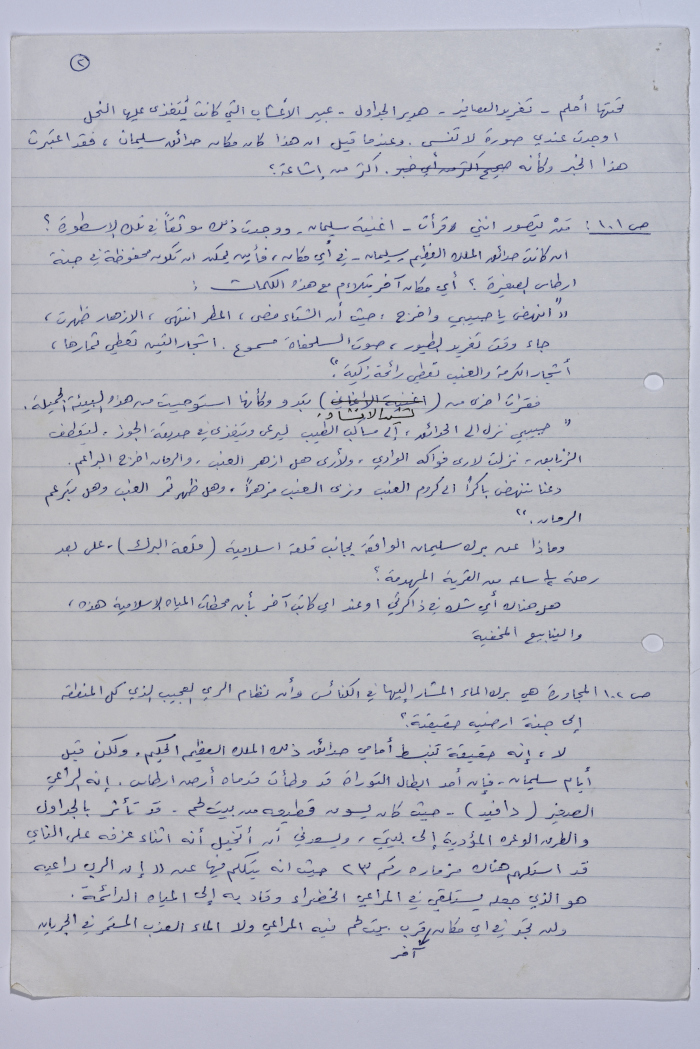 ٢
تحتها أحلم - تغريد العصافير - هدير الجداول - عبير الأعشاب التي كانت يتغذى عليها النحل
اوجدت عندي صورة لا تنسى. وعندما قيل ان هذا كان مكان حدائق سليمان، فقد اعتبرت
هذا الخبر وكأنه صحيح اكثر من أي خبر. اكثر من إشاعة؟
ص ١٠١: من يتصور انني قرأت - اغنية سليمان - ووجدت ذلك موثقاً في تلك الاسطورة؟
ان كانت حدائق الملك العظيم سليمان - في أي مكان، فأين يمكن ان تكون محفوظة في جنة
ارطاس الصغيرة؟ أي مكان آخر يتلاءم مع هذه الكلمات:
"انهض يا حبيبي واخرج، حيث أن الشتاء مضى، المطر انتهى، الازهار ظهرت،
جاء وقت تغريد الطيور، صوت السلحفاة مسموع. اشجار التين تعطي ثمارها،
أشجار الكرمة والعنب تعطي رائحة زكية؟"
فقرات اخرى من (اغنية الأغاني) تبدو وكأنها استوحيت من هذه البيئة الجميلة.
نشيد الانشاد
"حبيبي نزل الى الحدائق، الى مساكب الطيب ليرعى ويتغذى في حديقة الجوز. ليقطف
الزنابق، نزلت لارى فواكه الوادي، ولأرى هل ازهر العنب، والرمان اخرج البراعم.
دعنا ننهض باكراً الى كروم العنب ونرى العنب مزهراً، وهل ظهر ثمر العنب وهل تبرعم
الرمان."
وماذا عن برك سليمان الواقعة بجانب قلعة اسلامية (قلعة البرك) - على بعد
رحلة ½ ساعه من القرية المهدمة؟
هل هناك أي شك في ذاكرتي او عند اي كاتب آخر بأن محطات المياه الاسلامية هذه،
والينابيع المخفية
ص ١٠٢ المجاورة هي برك الماء المشار إليها في الكنائس وأن نظام الري العجيب الذي كل المنطقة
إلى جنة ارضيه حقيقة؟
لا، إنه حقيقة تنبسط أمامي حدائق ذلك الملك العظيم الحكيم. ولكن قبل
أيام سليمان - فإن أحد ابطال التوراة قد وطأت قدماه أرض ارطاس. إنه الراعي
الصغير (دافيد) - حيث كان يسوق قطيعه من بيت لحم. قد تأثر بالجداول
والطرق الوعره المؤدية إلى بيتي، ويسعدني أن أتخيل أنه اثناء عزفه على الناي
قد استلهم هناك مزماره رقم ٢٣ حيث انه يتكلم فيها عن "إن الرب راعيه
هو الذي جعله يستلقي في المراعي الخضراء وقاد به إلى المياه الدائمة.
ولن تجد في اي مكان قرب بيت لحم فيه المراعي ولا الماء العذب المستمر في الجريان
آخر